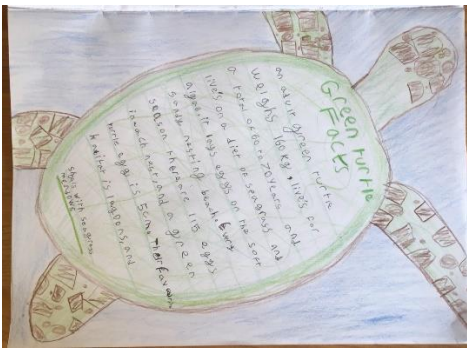 Green turtle
Facts
an adult green turtle
weighs 160 kg, lives for
a total of 60 to 70 years and
lives on a diet of seagrass and
algae. it lays eggs on the soft
sandy nesting beach. Every
season there are 115 eggs
in each nest and a green
turtle egg is 5cm. Their favourite
habitat is lagoons and
with seagrass